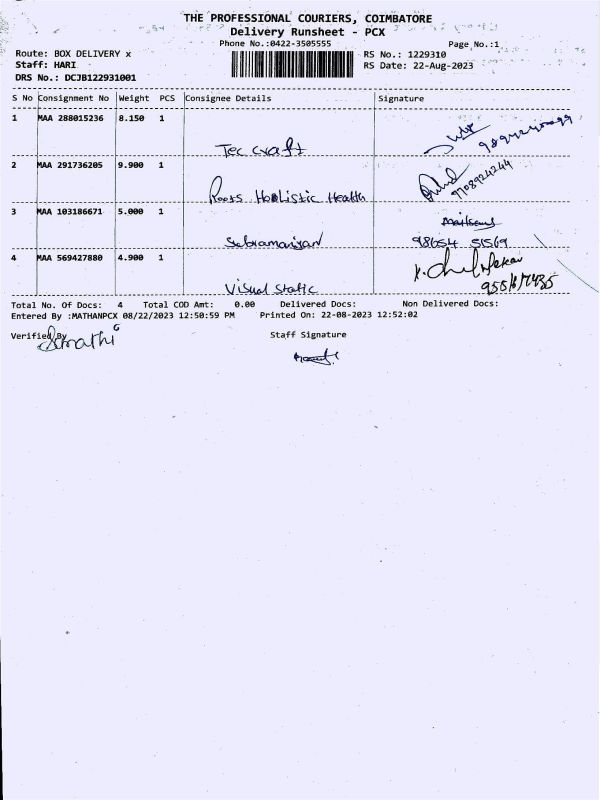 THE PROFESSIONAL COURIERS, COIMBATORE
Delivery Runsheet - PCX
Phone No.:0422-3505555
Page No.:1
Route: BOX DELIVERY x
Staff: HARI
DRS No.: DCJB122931001
RS No.: 1229310
RS Date: 22-Aug-2023
S No Consignment No Weight PCS Consignee Details Signature
1 MAA 288015236 8.150 1
Tec craft
2 MAA 291736205 9.900 1
9708924244
Roots Hoolistic Health
3 MAA 103186671 5.000 1
Subramaniyan 98654 51569
4 MAA 569427880 4.900 1
Visual Static
Total No. Of Docs: 4 Total COD Amt: 0.00 Delivered Docs: Non Delivered Docs:
Entered By :MATHANPCX 08/22/2023 12:50:59 PM Printed On: 22-08-2023 12:52:02
Verified By Staff Signature